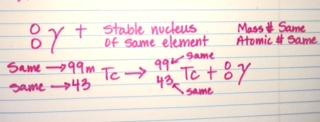 0 0 γ + Stable nucleus Mass # Same
of Same element Atomic # Same
Same → 99m Tc → 99 ← Same Tc + 0 γ
Same → 43 43 ← Same 0